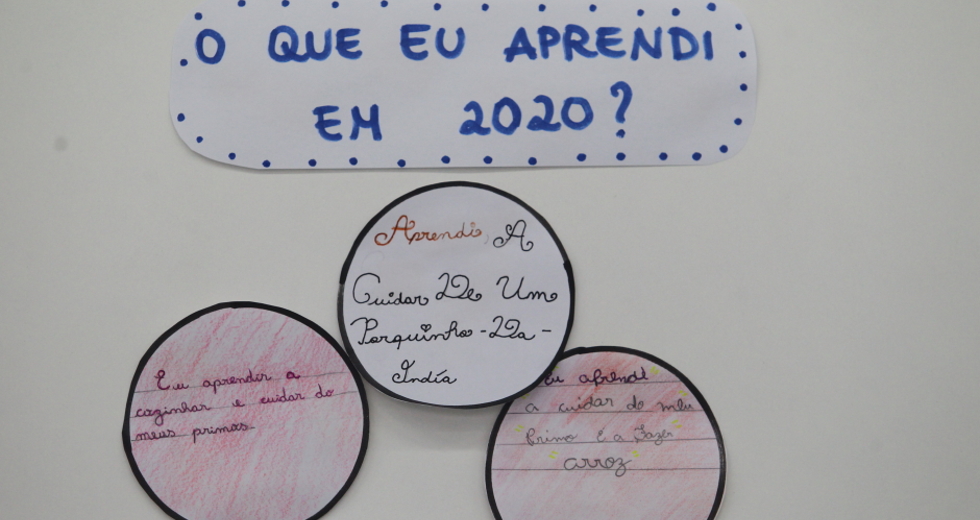 O QUE EU APRENDI
EM 2020?
Aprendi, A
Cuidar De Um
Porquinho-Da-
Índia
Eu aprender a
cozinhar e cuidar do
meus primos
Eu aprendi
a cuidar do meu
primo e a Fazer
arroz